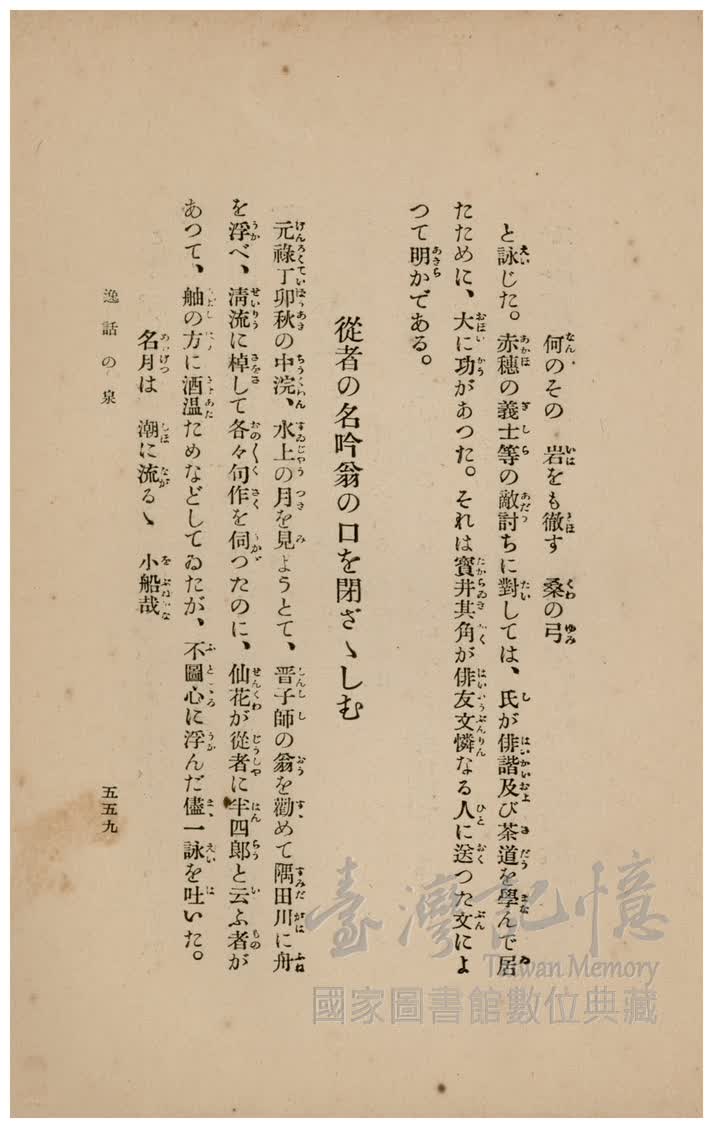 何のその　岩をも徹す　桑の弓
と詠じた。赤穗の義士等の敵討ちに對しては、氏が俳諧及び茶道を學んで居
たために、大に功があつた。それは寳井其角が俳友文憐なる人に送つた文によ
つて明かである。
從者の名吟翁の口を閉ざゝしむ
元祿丁卯秋の中浣、水上の月を見ようとて、晋子師の翁を勸めて隅田川に舟
を浮べ、淸流に棹して各々句作を伺つたのに、仙花が從者に半四郎と云ふ者が
あつて、舳の方に酒温ためなどしてゐたが、不圖心に浮んだ儘一詠を吐いた。
名月は　潮に流るゝ　小船哉
逸話の泉
五五九
臺灣記憶
Taiwan Memory
國家圖書館數位典藏